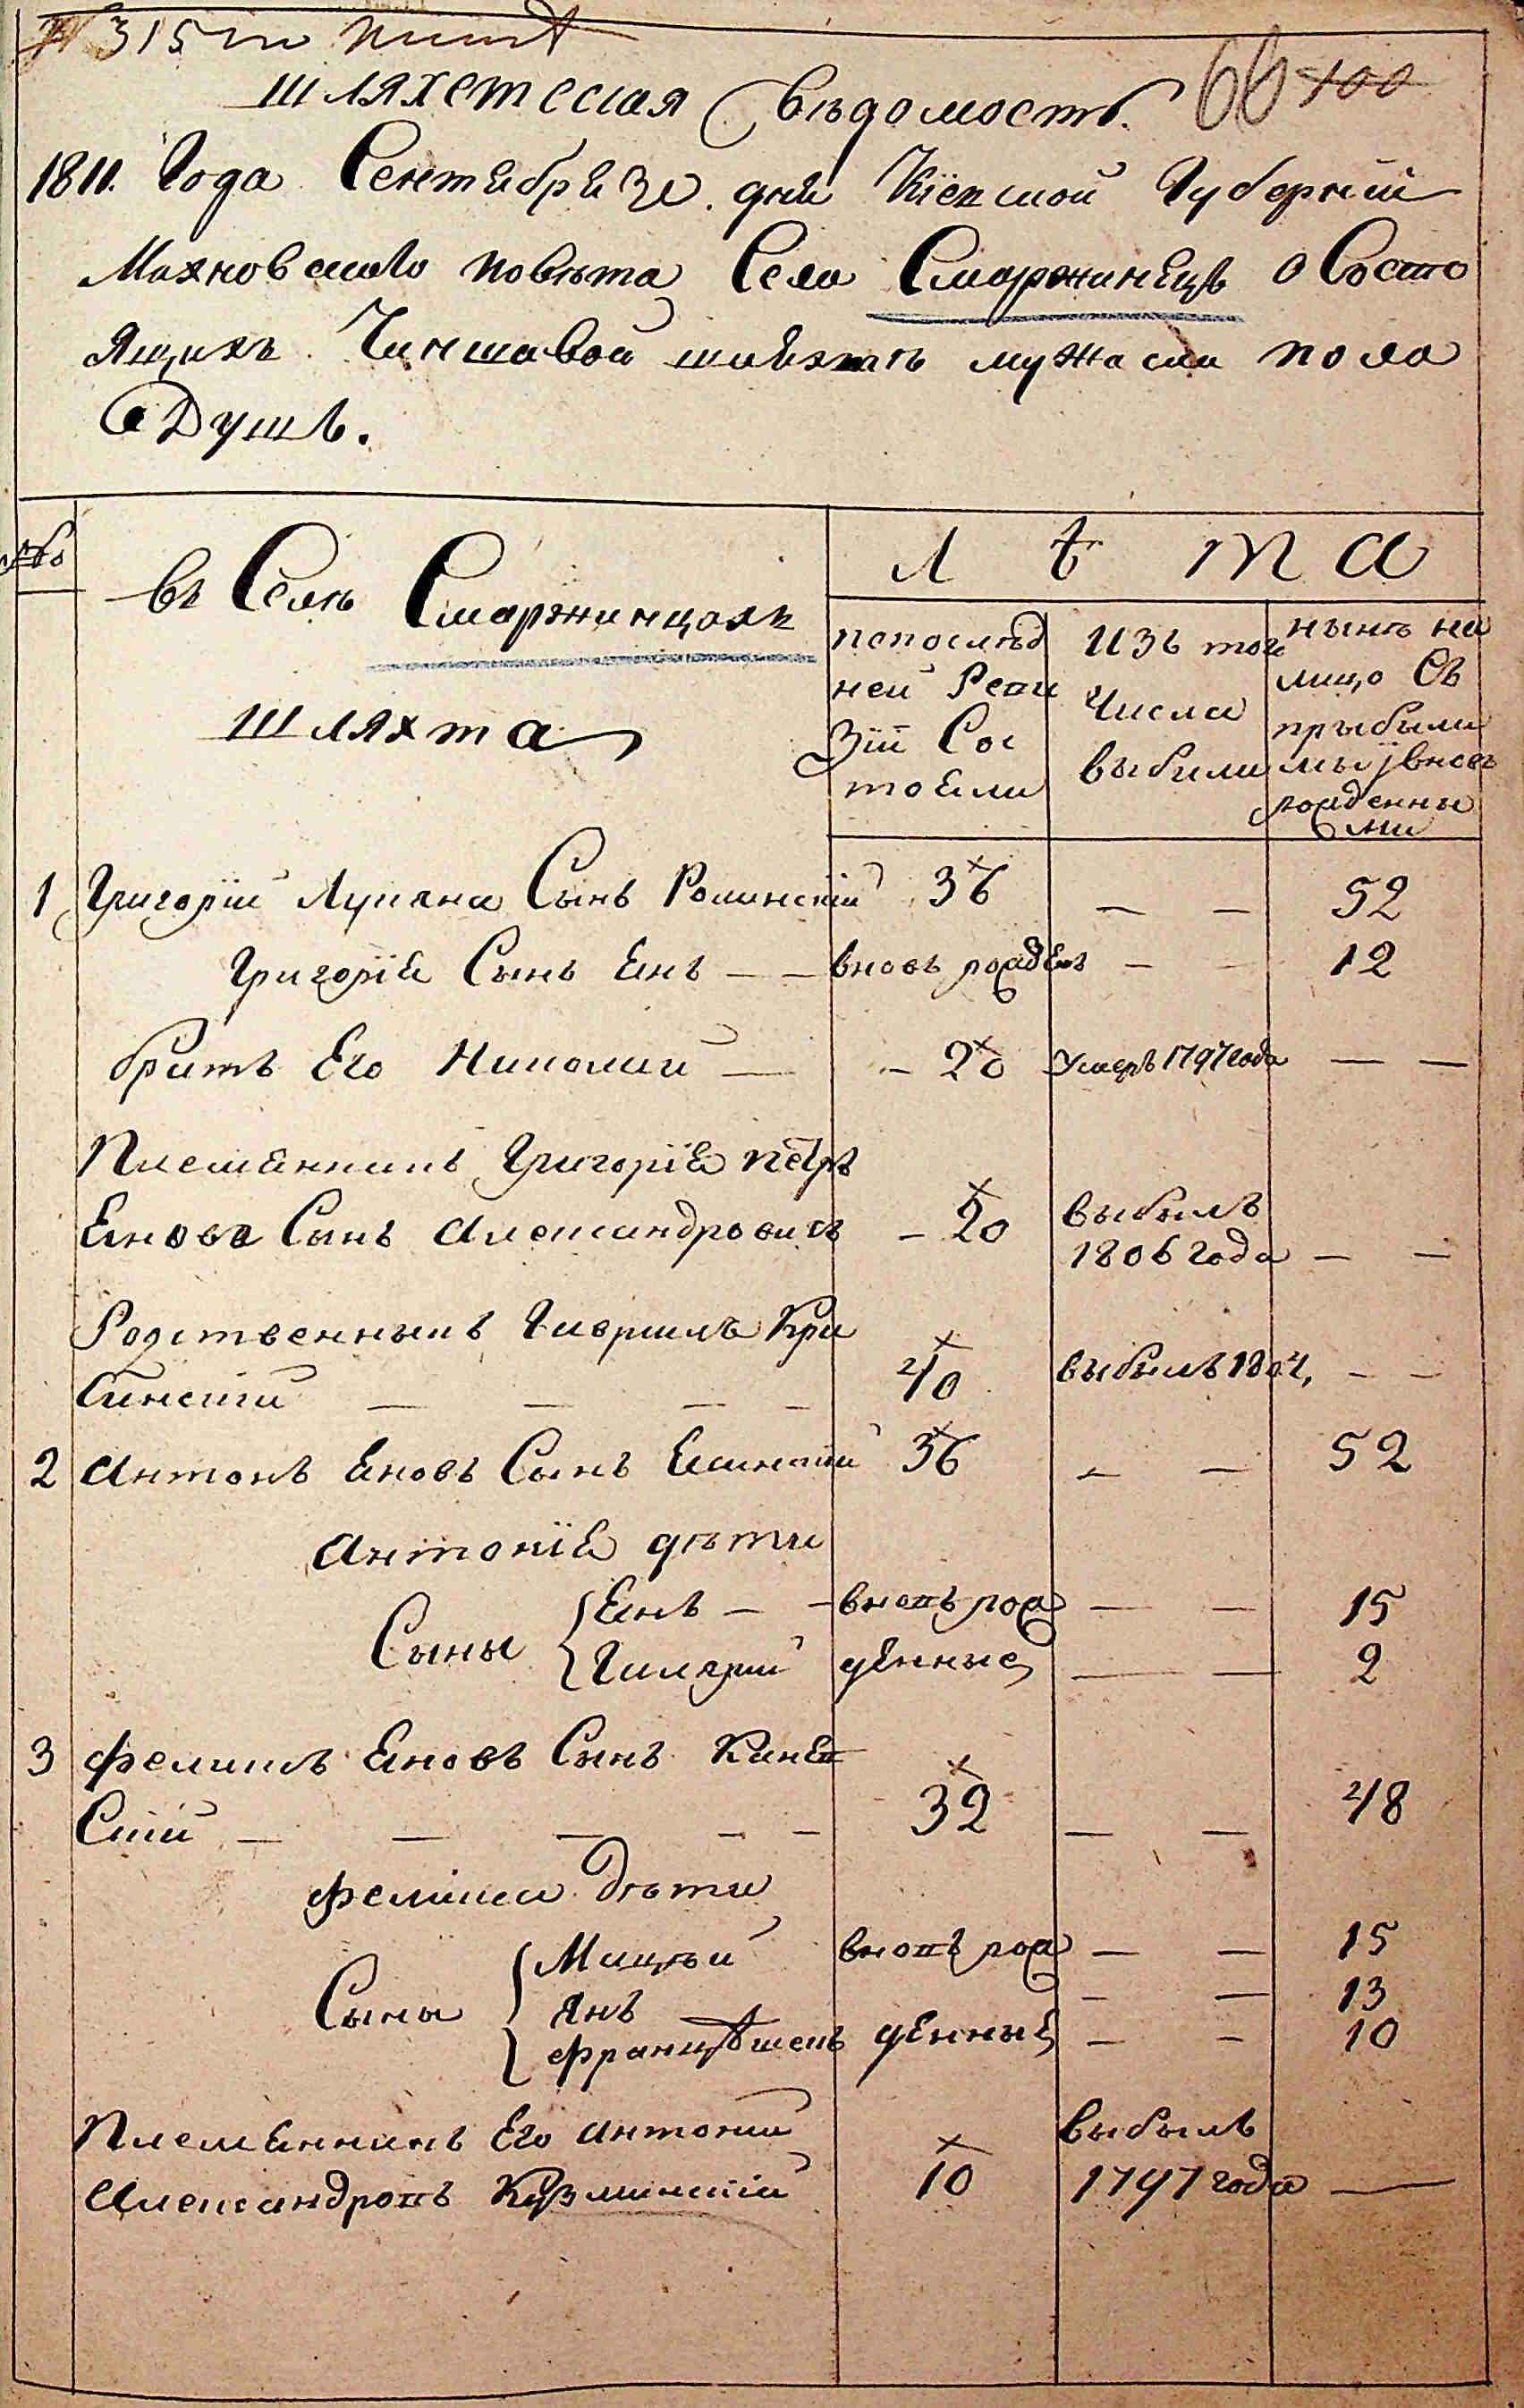 315
шляхетская вѣдомость. 66 100
1811. Года Сентебрե 30. дня Кіевской Губерніи
Махновского повѣта Села Смаржинецъ о Состо
ящихъ Чиншовой шляхтѣ мужска пола
Душѣ.
№
въ Селѣ Смаржинцахъ
шляхта
Л ѣ т а
попослѣд
ней Реви
зіи Сос
тояли
Изъ того
Числа
выбили
нынѣ на
лицо Съ
прыбыли
мы і вновь
рожденны
ми
1 Григорій Лукяна Сынъ Ролинскій 36 — — 52
Григорія Сынъ Янъ — — вновь рожденъ — — 12
братъ Его Николай — — 20 Умеръ 1797 года — —
Племянникъ Григорія петръ
Янова Сынъ Александровичъ — 20 выбылъ 1806 года — —
Родственникъ Гаврилъ Кри
синскій — — — — 40 выбылъ 1804, — —
2 Антонъ Яновъ Сынъ 36 — — 52
Антонія дѣти
Сыны Янъ — — вновь рож — — 15
Гиларій денные — — 2
3 Феликсъ Яновъ Сынъ Канев
Скій — — — — — 32 — — 48
Феликса дѣти
Сыны Мацѣй вновь рож — — 15
Янъ — — 13
Францѣшекъ денные — — 10
Племянникъ Его Антоній
Александровъ Кузминскій 10 выбылъ 1797 года —